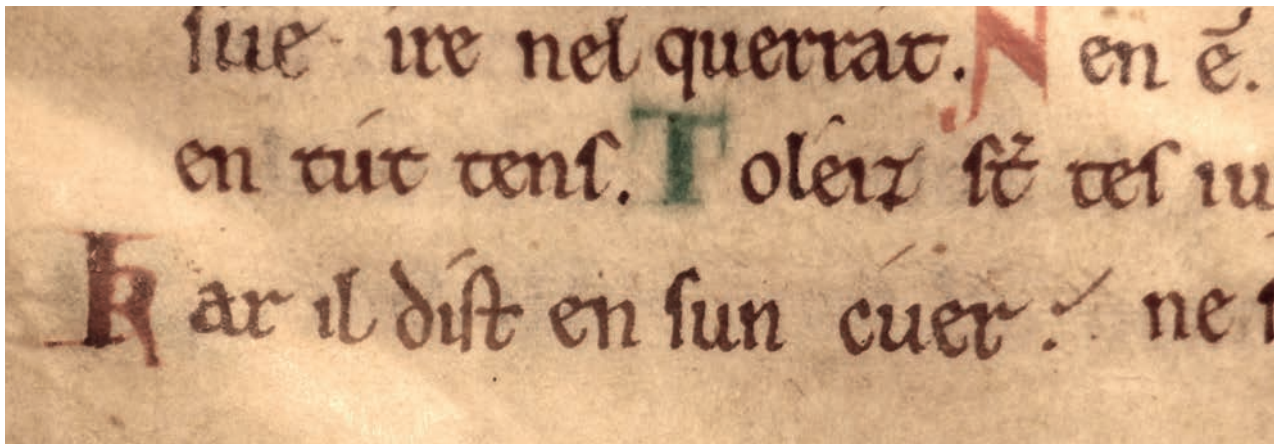 sue ire nel querrat. N en ē.
en tut tens. T oleiz st̄ tes iu
K ar il dist en sun cuer : ne